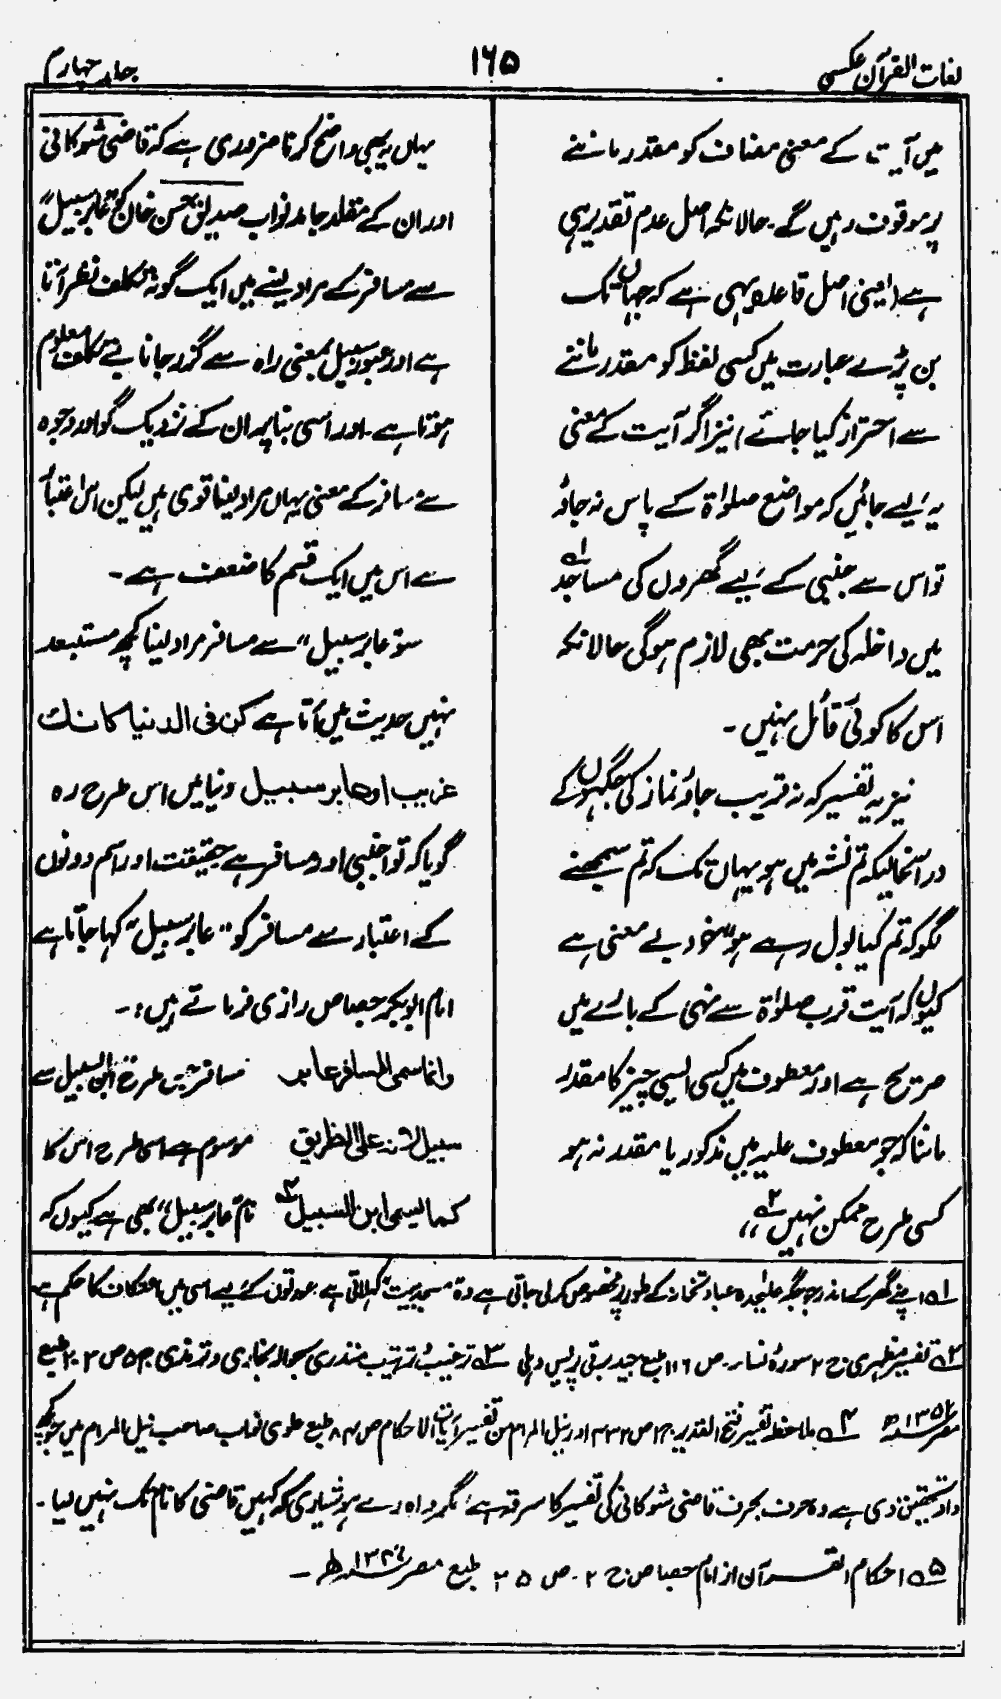 لغات القرآن عکسی
۱۶۵
جلد چہارم
میں آیت کے معنی مضاف کو مقدر ماننے
پر موقوف رہیں گے۔ حالانکہ اصل عدم تقدیر ہی
ہے (یعنی اصل قاعدہ یہی ہے کہ جہاں تک
بن پڑے عبارت میں کسی لفظ کو مقدر ماننے
سے احتراز کیا جائے) نیز اگر آیت کے معنی
یہ لیے جائیں کہ مواضع صلوٰۃ کے پاس نہ جاؤ
تو اس سے جنبی کے لیے گھروں کی مساجد ؎۱
میں داخلہ کی حرمت بھی لازم ہوگی حالانکہ
اس کا کوئی قائل نہیں۔
نیز یہ تفسیر کہ نہ قریب جاؤ نماز کی جگہوں کے
درآنحالیکہ تم نشہ میں ہو یہاں تک کہ تم سمجھنے
لگو کہ تم کیا بول رہے ہو خود بے معنی ہے
کیوں کہ آیت قرب صلوٰۃ سے نہی کے بارے میں
صریح ہے اور معطوف میں کسی ایسی چیز کا مقدر
ماننا کہ جو معطوف علیہ میں مذکور یا مقدر نہ ہو
کسی طرح ممکن نہیں ؎۲ ،،
یہاں یہ بھی واضح کرنا ضروری ہے کہ قاضی شوکانی
اور ان کے مقلد جامد نواب صدیق حسن خان کو "عابر سبیل"
سے مسافر کے مراد لینے میں ایک گونہ تکلف نظر آتا
ہے اور عبور سبیل بمعنی راہ سے گزر جانا بے تکلف معلوم
ہوتا ہے۔ اور اسی بنا پر ان کے نزدیک گو اور وجوہ
سے مسافر کے معنی یہاں مراد لینا قوی ہیں لیکن اس اعتبار
سے اس میں ایک قسم کا ضعف ہے۔
سو "عابر سبیل" سے مسافر مراد لینا کچھ مستبعد
نہیں حدیث میں آتا ہے کن فی الدنیا کانك
غریب او عابر سبیل دنیا میں اس طرح رہ
گویا کہ تو اجنبی اور مسافر ہے حقیقت اور اسم دونوں
کے اعتبار سے مسافر کو "عابر سبیل" کہا جاتا ہے
امام ابوبکر جصاص رازی فرماتے ہیں:۔
وانما سمی المسافر عابر مسافر جس طرح ابن السبیل سے
سبیل لانہ علی الطریق موسوم ہے اسی طرح اس کا
کما یسمی ابن السبیل نام "عابر سبیل" بھی ہے کیوں کہ
؎۱ اپنے گھر کے اندر جو جگہ علیٰحدہ عبادتخانہ کے طور پر مخصوص کر لی جاتی ہے وہ مسجد بیت کہلاتی ہے عورتوں کے لیے اسی میں اعتکاف کا حکم ہے
؎۲ تفسیر مظہری ج ۲ سورۂ نساء۔ ص ۱۱۶ طبع جید برقی پریس دہلی ؎۳ ترغیب و ترہیب منذری بحوالہ بخاری و ترمذی ج ۵ ص ۲۰۳ طبع
مصر ؎۴ ملاحظہ تفسیر فتح القدیر ج ۱ ص ۴۳۲ اور نیل المرام من تفسیر آیات الاحکام ص ۸۴ طبع علوی نواب صاحب نیل المرام میں جو کچھ
داد تحقیق دی ہے وہ حرف بحرف قاضی شوکانی کی تفسیر کا سرقہ ہے، مگر واہ رے ہوشیاری کہ کہیں قاضی کا نام تک نہیں لیا۔
؎۵ احکام القرآن از امام جصاص ج ۲۔ ص ۲۵ طبع مصر